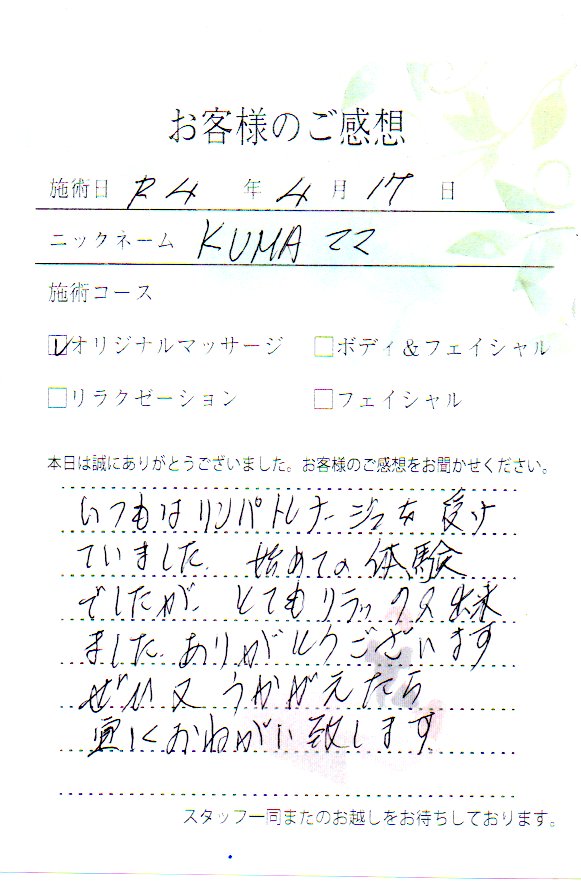 お客様のご感想
施術日 R4 年 4 月 17 日
ニックネーム KUMA ママ
施術コース
オリジナルマッサージ □ボディ&フェイシャル
□リラクゼーション □フェイシャル
本日は誠にありがとうございました。お客様のご感想をお聞かせください。
いつもはリンパドレナージュを受け
ていました 始めての体験
でしたが、とてもリラックス出来
ました ありがとうございます
ぜひ又うかがえたら
宜しくおねがい致します
スタッフ一同またのお越しをお待ちしております。